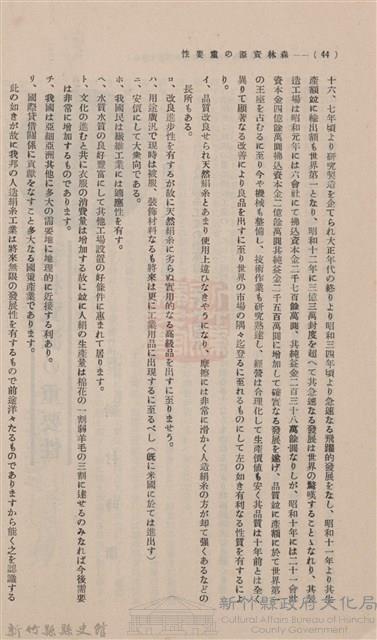 (44)——森林資源の重要性
十六、七年頃より研究製造を企てられ大正年代の終りより昭和三四年頃より急速なる飛躍的發展をなし、昭和十一年より其生
產額竝に輸出額も世界第一となり、昭和十二年に三億三萬封度を超へて其急速なる發展は世界の驚嘆することゝなれり、其製
造工場は昭和元年には六會社にて拂込資本金二千七百餘萬圓、其純益金二百三十八萬餘圓なりしが、昭和十年には二十一會社
資本金四億餘萬圓拂込資本金二億餘萬圓其純益金二千五百萬圓に增加して確實なる發展を遂げ、品質竝に產額に於て世界第一
の王座を占むるに至り今や機械も整備し、技術作業も研究熟達し、經營は合理化して生產價値も安く其品質は十年前とは全く
異りて顯著なる改善により良品を出すに至り世界の市場の隅々迄登るに至れるものにして左の如き有利なる性質を有するによ
り。
イ、品質改良せられ天然絹糸とあまり使用上違ひなきそうになり、摩擦には非常に滑かく人造絹糸の方が却て强くあるなどの
長所もある。
ロ、改良進步性を有するが故に天然絹糸に劣らぬ實用的なる高級品を出すに至りませう。
ハ、用途廣況で現時は被服、裝飾材料なるも將來は更に工業用品に出現するに至るべし(旣に米國に於ては進出す)
ニ、安價にして大衆向である。
ホ、我國民は纎維工業には適應性を有す。
ヘ、水質水質の良好豐富にして其他工場設置の好條件に惠まれて居ります。
ト、文化の進むと共に衣服の消費量は增加する故に竝に人絹の生產量は棉花の一割羊毛の三割に達せるのみなれば今後需要
は非常に增加するものであります。
チ、我國は亞細亞洲其他に多大の需要地に地理的に近接する利あり。
リ、國際貸借關係に貢獻をなすこと多大なる國策產業であります。
此の如きが故に我邦の人造絹糸工業は將來無限の發展性を有するもので前途洋々たるものでありますから能く之を認識する
新竹縣縣史館
新竹縣政府文化局
Cultural Affairs Bureau of Hsinchu
County Government